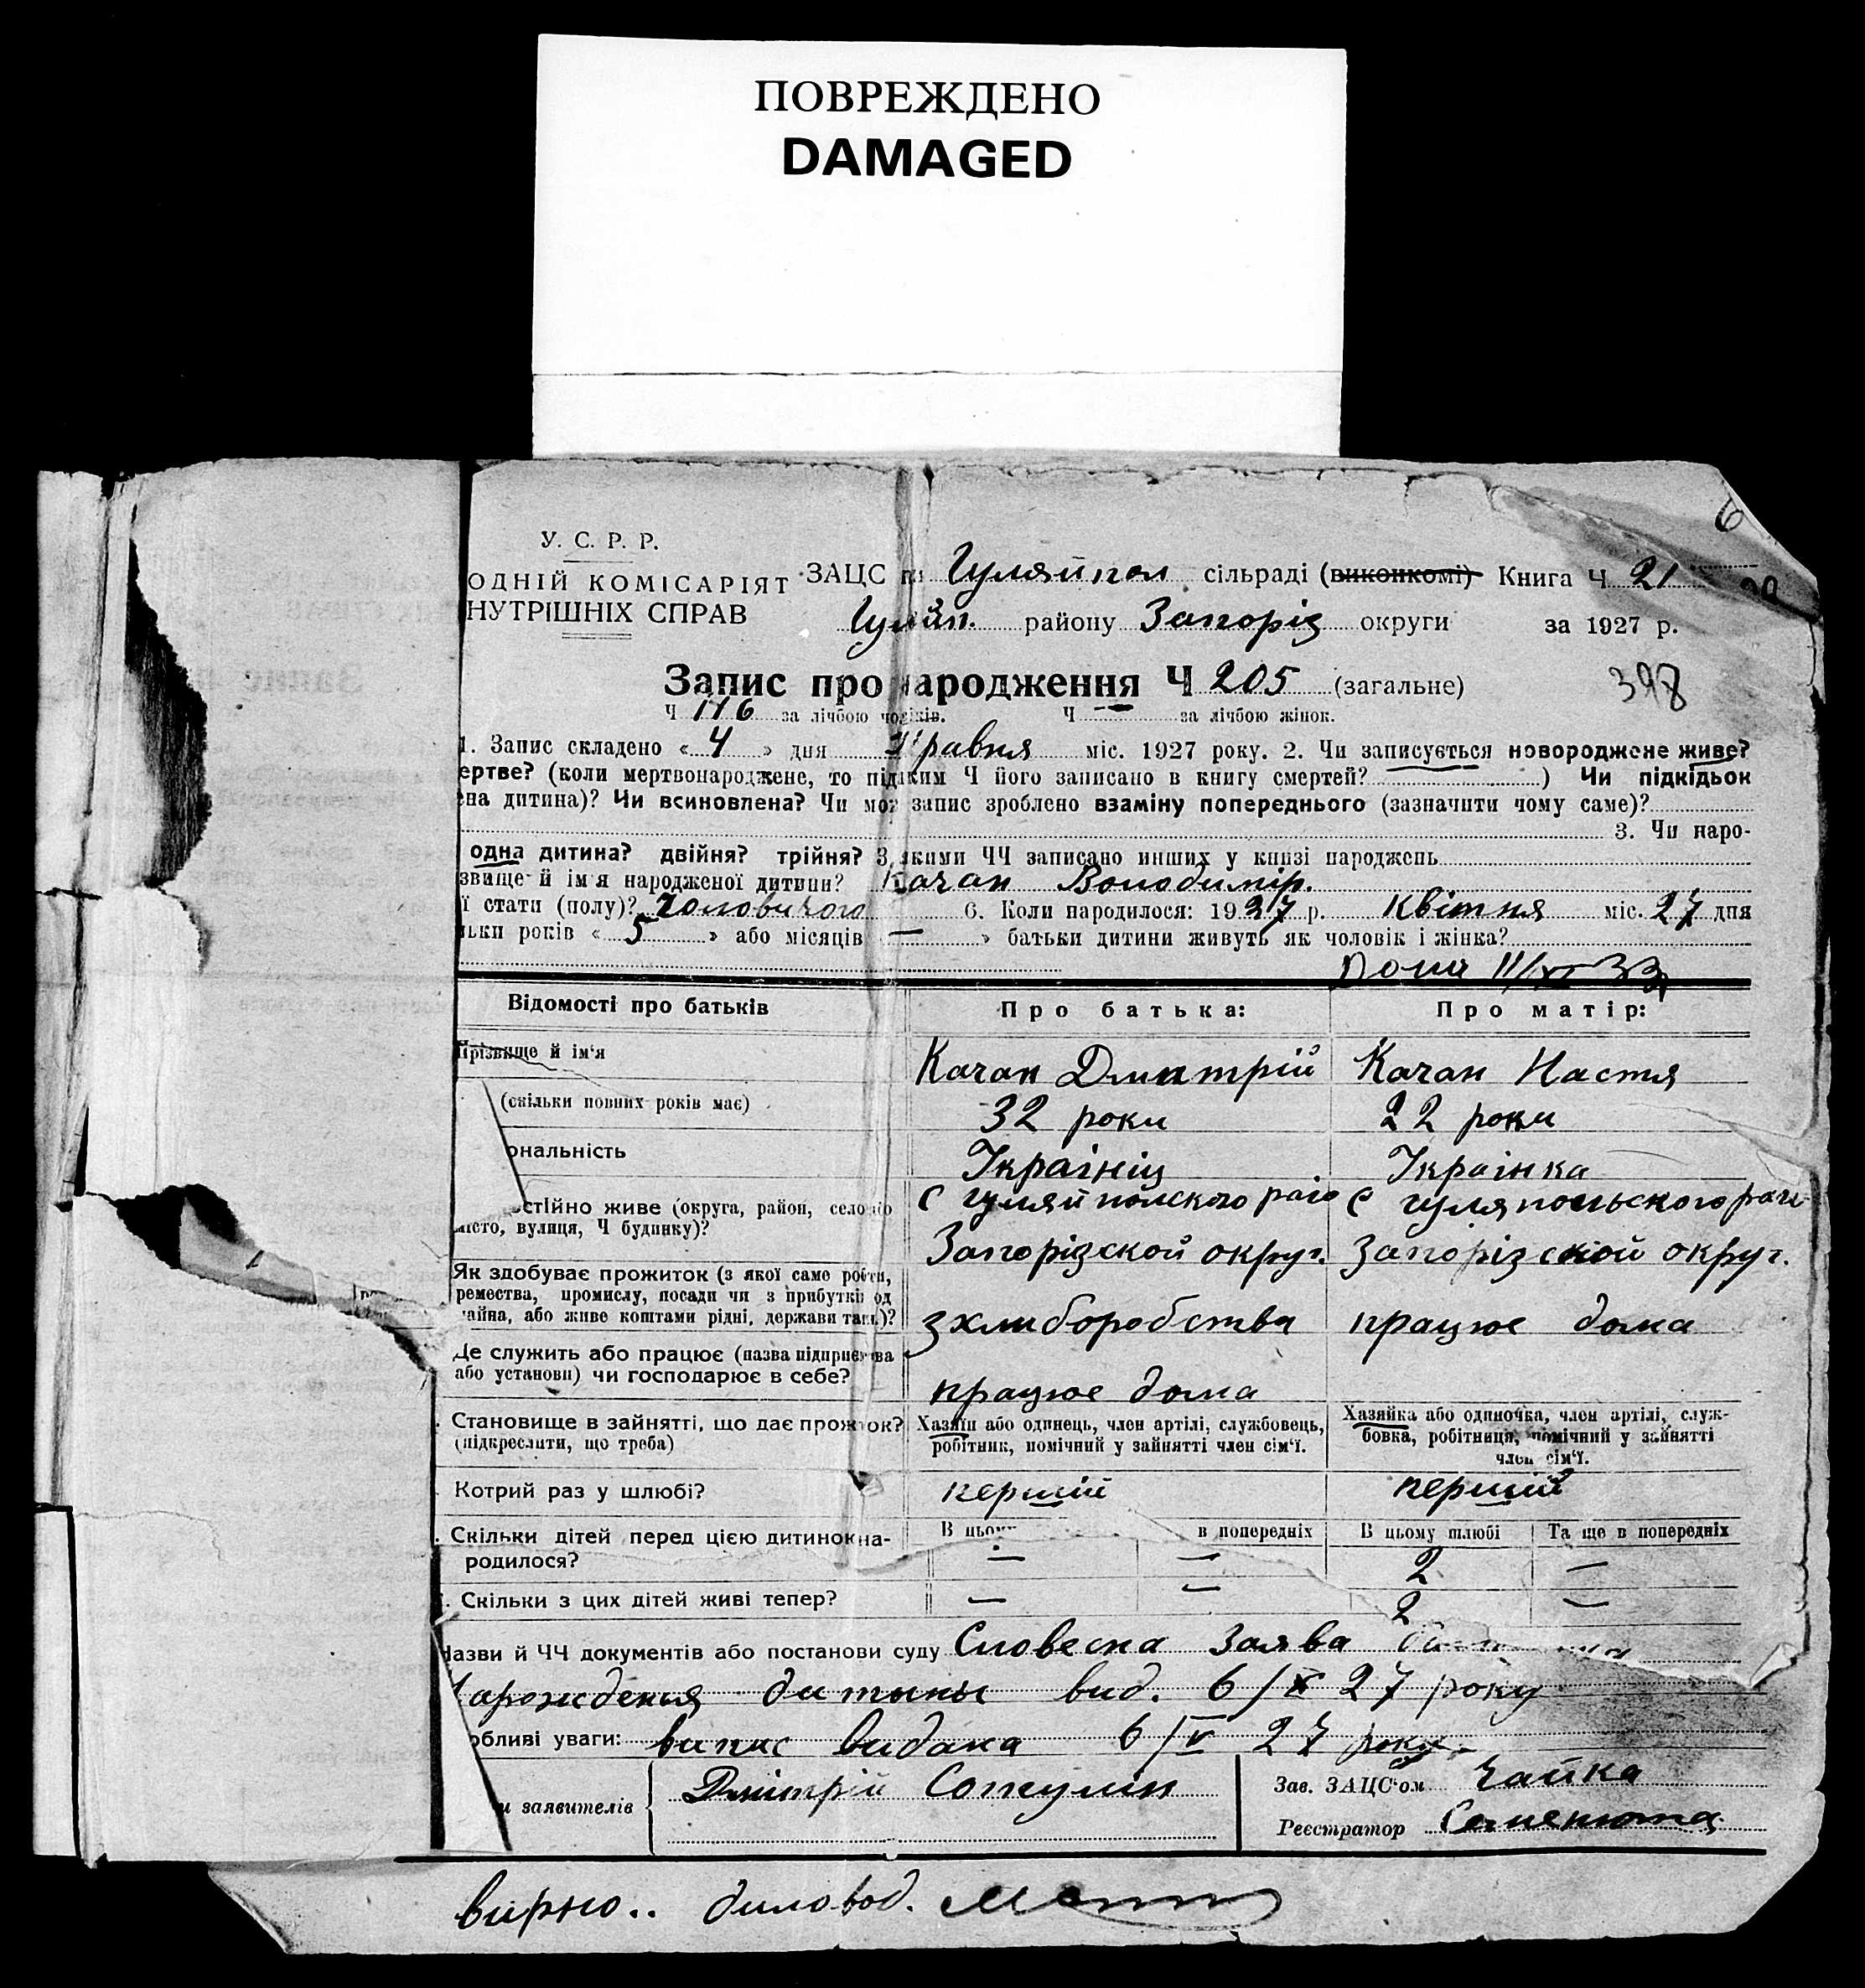 ПОВРЕЖДЕНО
DAMAGED
6
У. С. Р. Р.
ОДНІЙ КОМІСАРІЯТ
НУТРІШНІХ СПРАВ
ЗАЦС Гуляйпол сільраді (виконкомі) Книга Ч 21
Гуляйп. району Запоріз округи за 1927 р.
Запис про народження Ч 205 (загальне)
398
Ч 116 за лічбою чоловіків. Ч — за лічбою жінок.
1. Запис складено « 4 » дня Травня міс. 1927 року. 2. Чи записується новороджене живе?
ертве? (коли мертвонароджене, то під яким Ч його записано в книгу смертей? ) Чи підкідьок
на дитина)? Чи всиновлена? Чи мож запис зроблено взаміну попереднього (зазначити чому саме)?
3. Чи наро-
одна дитина? двійня? трійня? З якими ЧЧ записано инших у книзі народжень
звище й ім'я народженої дитини? Качан Володимір.
ї стати (полу)? Чоловичого 6. Коли народилося: 1927 р. Квітня міс. 27 дня
льки років « 5 » або місяців — » батьки дитини живуть як чоловік і жінка?
Відомості про батьків Про батька: Про матір:
Прізвище й ім'я Качан Дмитрій Качан Настя
(скільки повних років має) 32 роки 22 роки
ональність Українiц Українка
стійно живе (округа, район, село або
місто, вулиця, Ч будинку)?
с гуляйполского раіо с гуляпольського раги
Запорізской округ. Запорізской округ.
Як здобуває прожиток (з якої саме роботи,
ремества, промислу, посади чи з прибутків од
майна, або живе коштами рідні, держави тащ.)?
зхлиборобства працює дома
Де служить або працює (назва підприємства
або установи) чи господарює в себе?
працює дома
Становище в зайнятті, що дає прожиток?
(підкреслити, що треба)
Хазяїн або одинець, член артілі, службовець,
робітник, помічний у зайнятті член сім'ї.
Хазяйка або одиночка, член артілі, служ-
бовка, робітниця, помічний у зайнятті
член сім'ї.
Котрий раз у шлюбі? перший перший
Скільки дітей перед цією дитиною на-
родилося?
В цьому в попередніх В цьому шлюбі Та ще в попередніх
— — 2 —
Скільки з цих дітей живі тепер? — — 2 —
Назви й ЧЧ документів або постанови суду Словесна Заява
нарождения дитыны вид. 6/V 27 року
обливі уваги: випис видана 6/V 27 року
и заявителів Дмітрій Зав. ЗАЦС'ом Чайка
Реєстратор Семенюта
вирно.. диловод.